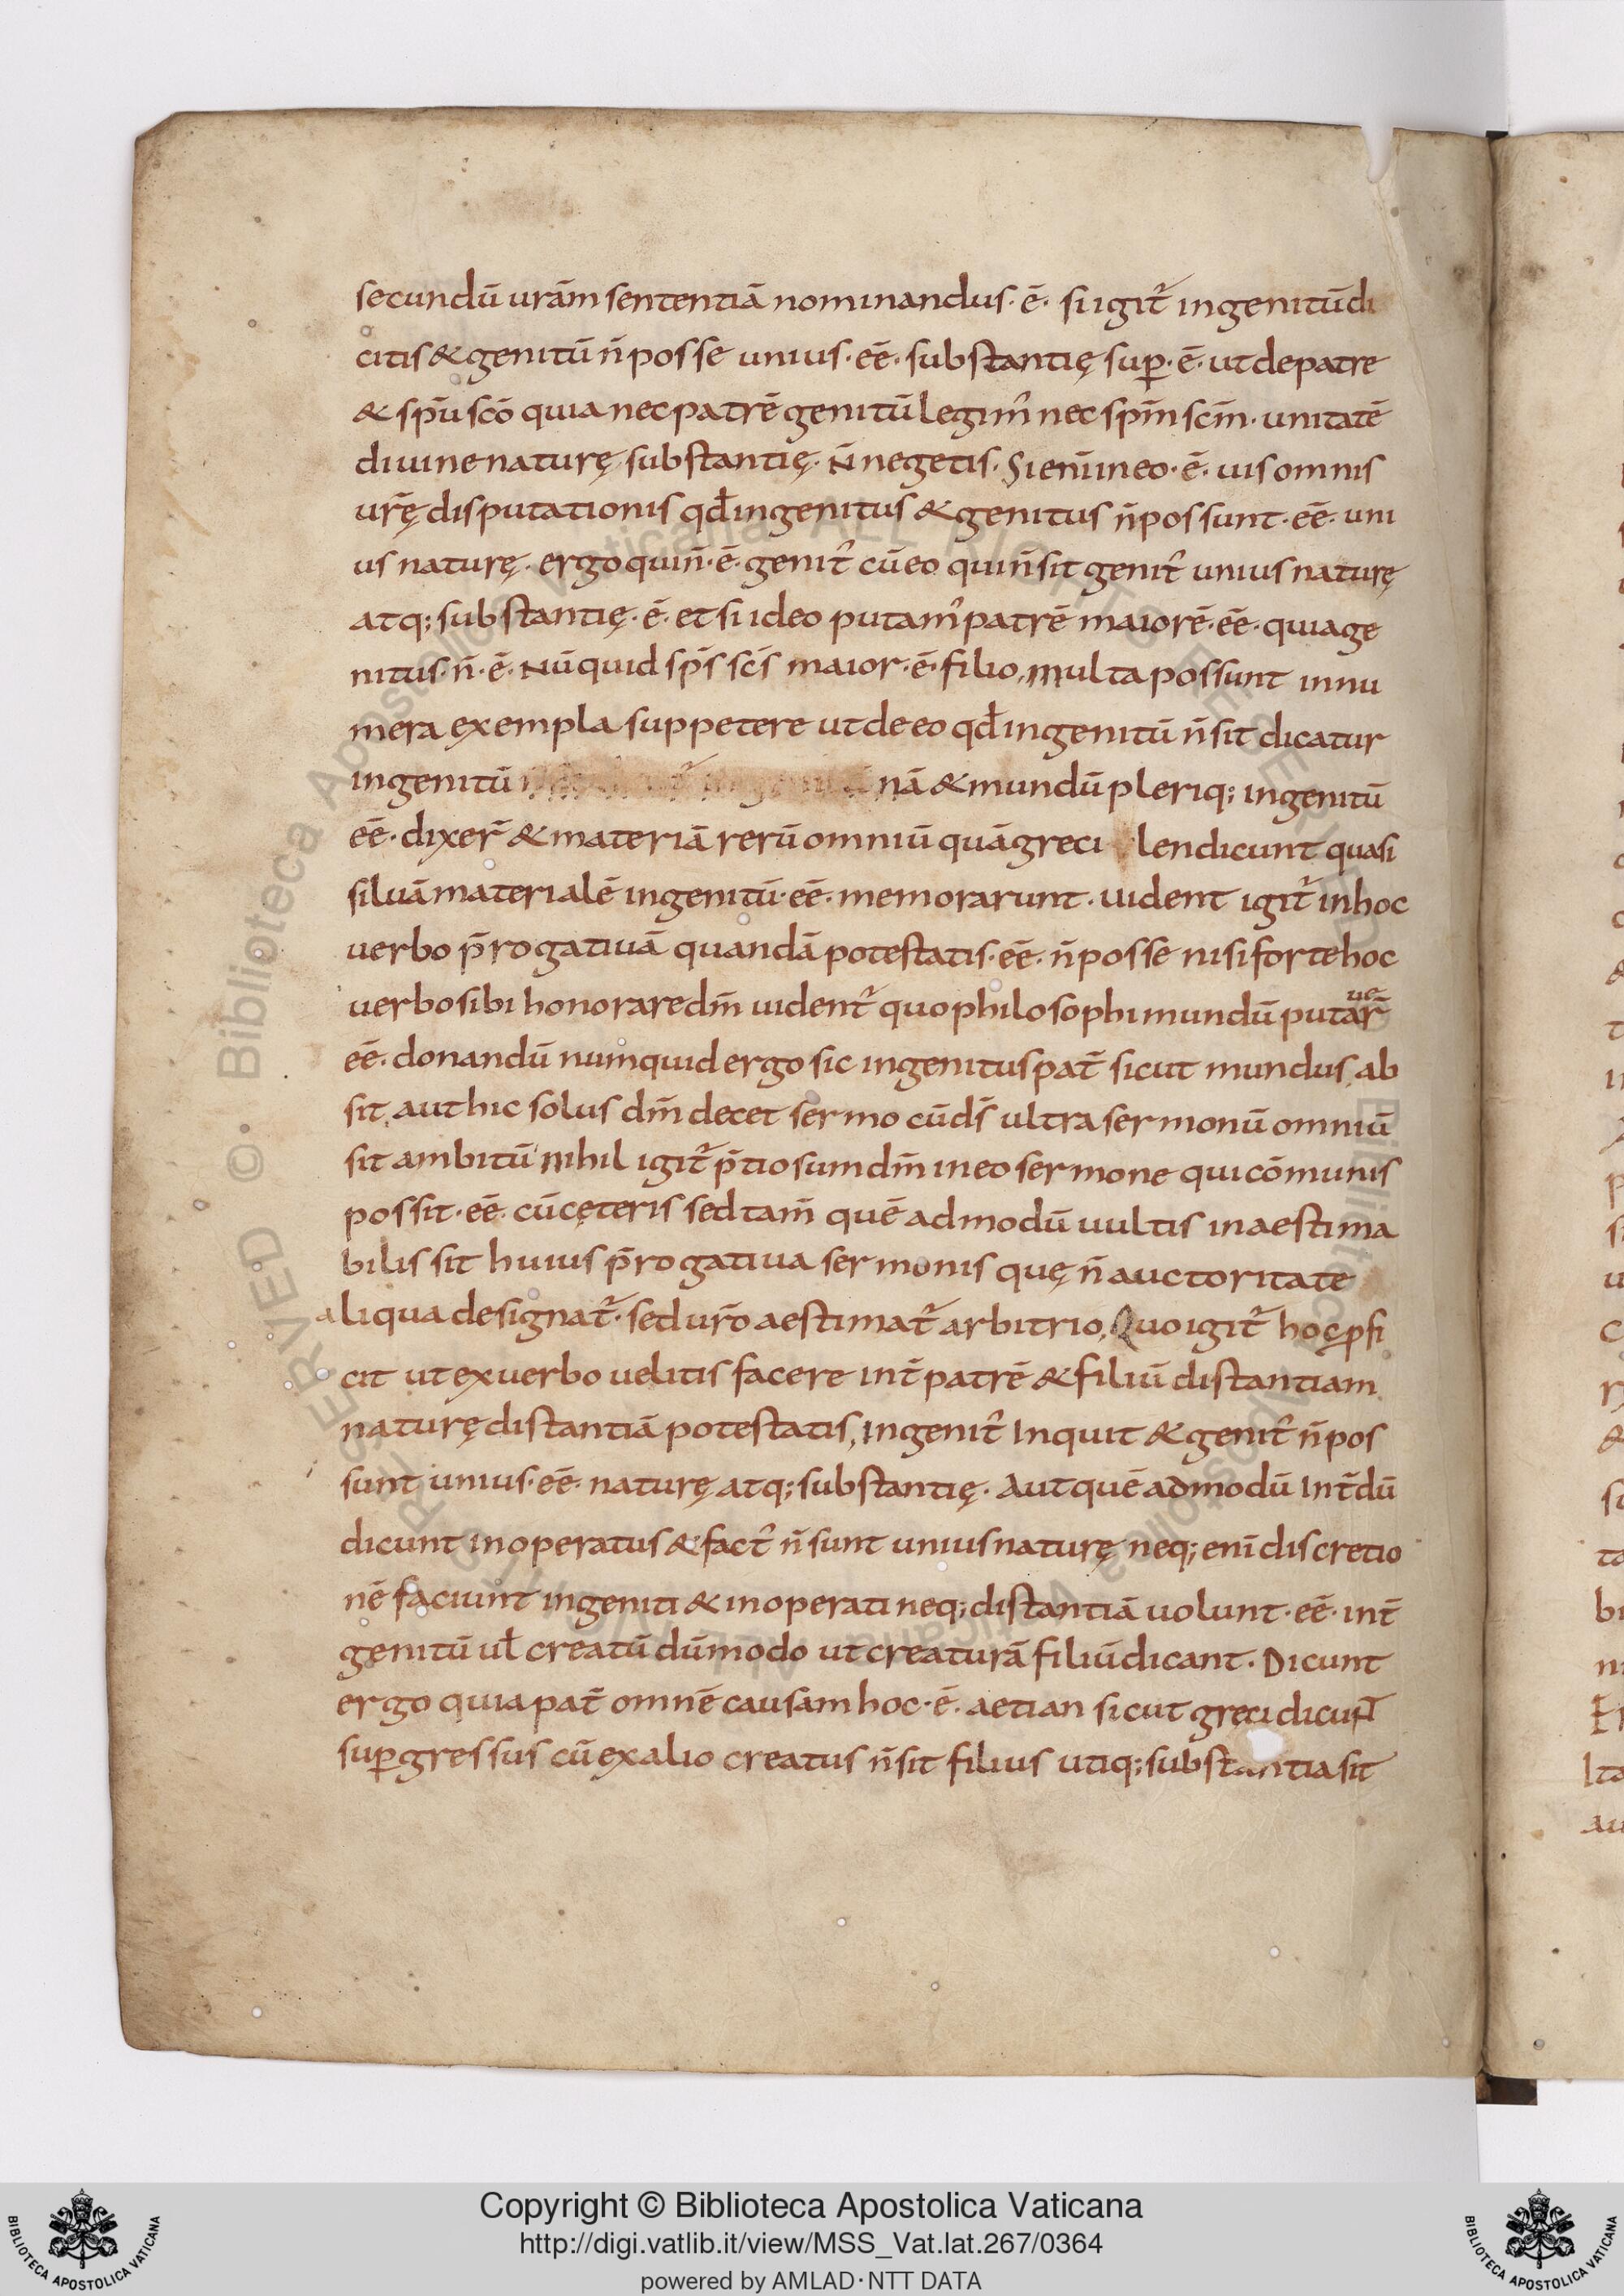 secundū urām sententiā nominandus·ē· si igit̃ ingenitū di
citis & genitū n̄ posse unius·eē· substantię sup̱·ē· ut de patre
& sp̄u scō quia nec patrē genitū legim̓ nec sp̄m scm̄· unitatē
diuine naturę substantię· N̄ negetis· Si enī in eo·ē· uis omnis
ur̄ę disputationis qd̄ ingenitus & genitus n̄ possunt·eē· uni
us naturę· ergo qui n̄·ē· genit̓ cū eo qui n̄ sit genit̓ unius naturę
atq; substantię·ē· et si ideo putam̓ patrē maiorē·eē· quia ge
nitus·n̄·ē· Nūquid sp̄s sc̄s maior·ē· filio, multa possunt innu
mera exempla suppetere ut de eo qd̄ ingenitū n̄ sit dicatur
ingenitū nā & mundū pleriq; ingenitū
eē· dixer̄ & materiā rerū omniū quā greci len dicunt quasi
siluā materialē ingenitū·eē· memorarunt· uident igit̃ in hoc
uerbo p̄rogatiuā quandā potestatis·eē· n̄ posse nisi forte hoc
uerbo sibi honorare dm̄ uident̃ quo philosophi mundū putar̄
ue
eē· donandū numquid ergo sic ingenitus pat̄ sicut mundus, ab
sit, aut hic solus dm̄ decet sermo cū ds̄ ultra sermonū omniū
sit ambitū nihil igit̃ p̄tiosum dm̄ in eo sermone qui cōmunis
possit·eē· cū cęteris sed tam̄ quē admodū uultis inaestima
bilis sit huius p̄rogatiua sermonis quę n̄ auctoritate
aliqua designat̃· sed ur̄o aestimat̃ arbitrio, Quo igit̃ hoc p̱fi
cit ut ex uerbo uelitis facere int̄ patrē & filiū distantiam
naturę distantiā potestatis, Ingenit̓ Inquit & genit̓ n̄ pos
sunt unius·eē· naturę atq; substantię· Aut quē admodū Int̄dū
dicunt inoperatus & fact̓ n̄ sunt unius naturę neq; enī discretio
nē faciunt ingeniti & inoperati neq; distantiā uolunt·eē· int̄
genitū ul̄ creatū dūmodo ut creaturā filiū dicant· Dicunt
ergo quia pat̄ omnē causam hoc·ē· aetian sicut gręci dicunt
sup̱gressus cū ex alio creatus n̄ sit filius utiq; substantia sit
Copyright © Biblioteca Apostolica Vaticana
http://digi.vatlib.it/view/MSS_Vat.lat.267/0364
powered by AMLAD·NTT DATA
BIBLIOTECA APOSTOLICA VATICANA
BIBLIOTECA APOSTOLICA VATICANA